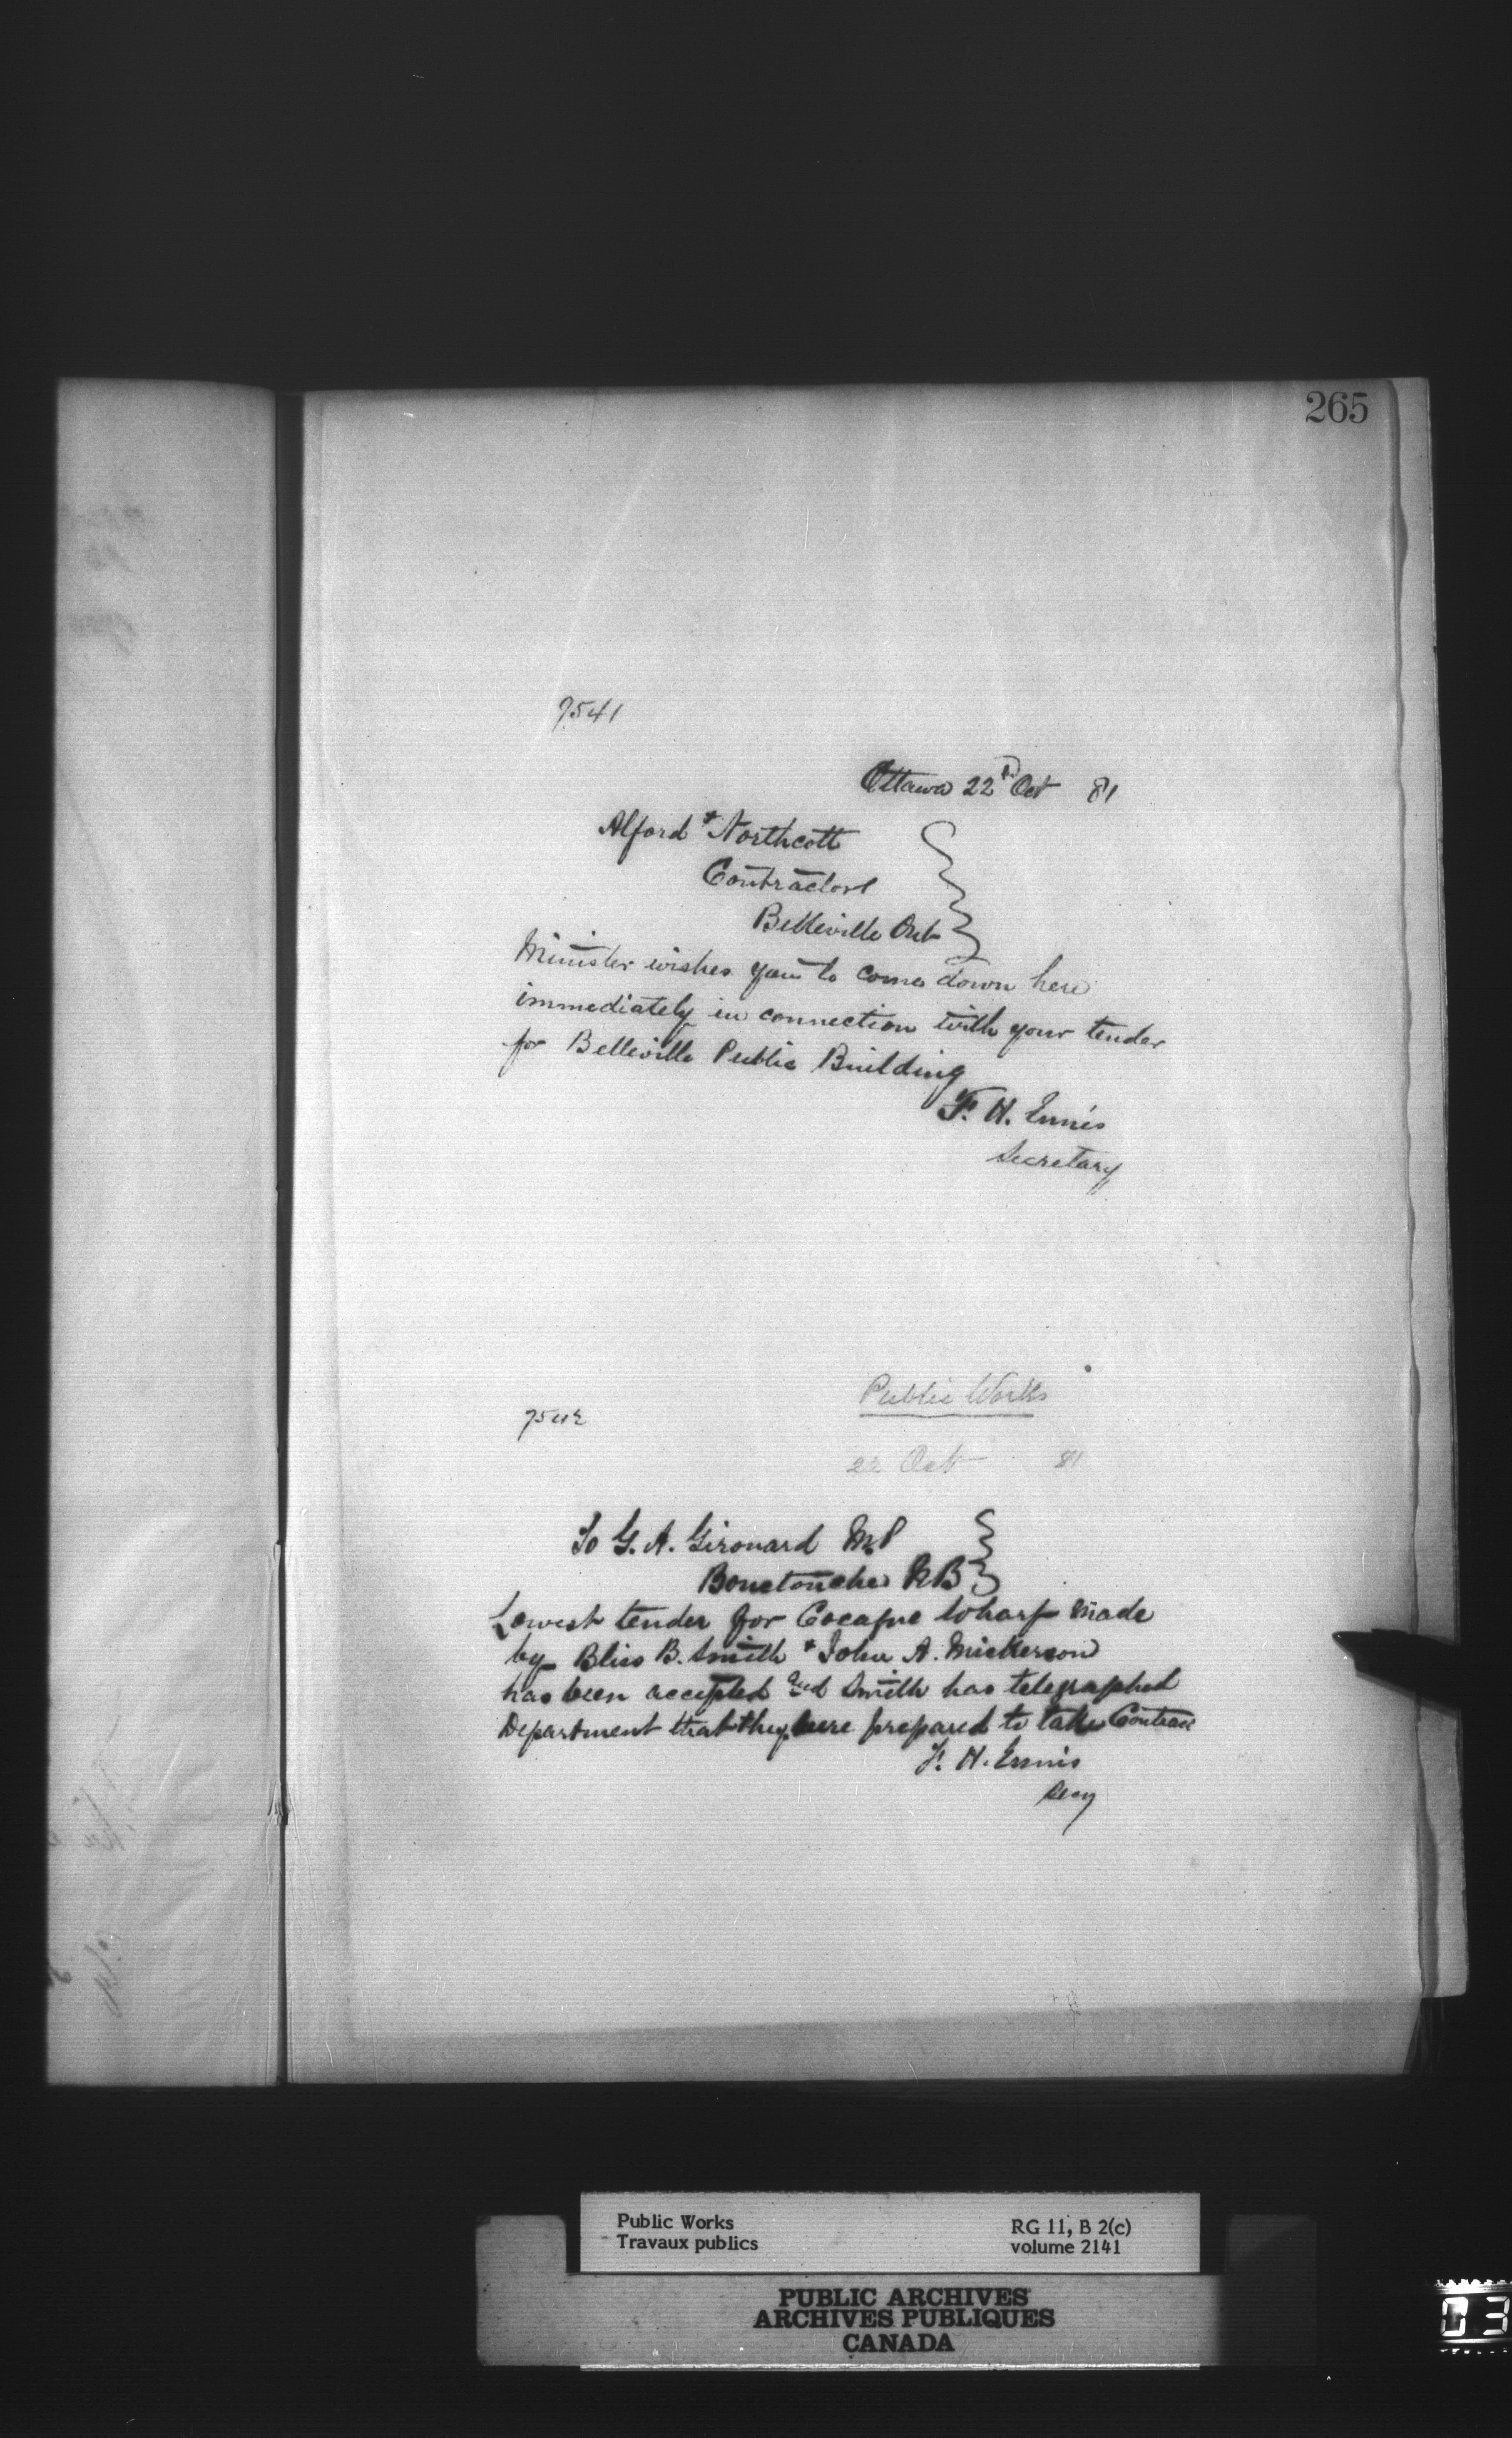 265
7541
Ottawa 22nd Oct 81
Alford & Northcott
Contractors
Belleville Ont
Minister wishes you to come down here
immediately in connection with your tender
for Belleville Public Building
F. H. Ennis
Secretary
Public Works
7542
22 Oct 81
To G. A. Girouard MP
Bouctouche NB
Lowest tender for Cocagne Wharf made
by Bliss B. Smith & John A. Mickerson
has been accepted and Smith has telegraphed
Department that they were prepared to take Contract
F. H. Ennis
Secy
Public Works
Travaux publics
RG 11, B 2(c)
volume 2141
PUBLIC ARCHIVES
ARCHIVES PUBLIQUES
CANADA
03